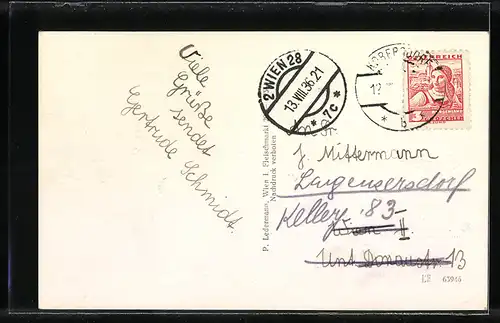 Viele
Grüße
sendet
Gertrude Schmidt.
P. Ledermann, Wien I, Fleischmarkt
Nachdruck verboten
2 WIEN 28
13.VIII.36.21
* 7c *
ÖSTERREICH
3
* b
J. Mittermann
Langenzersdorf
Kellerg. 83
Wien II.
Unt. Donaustr. 13
63946